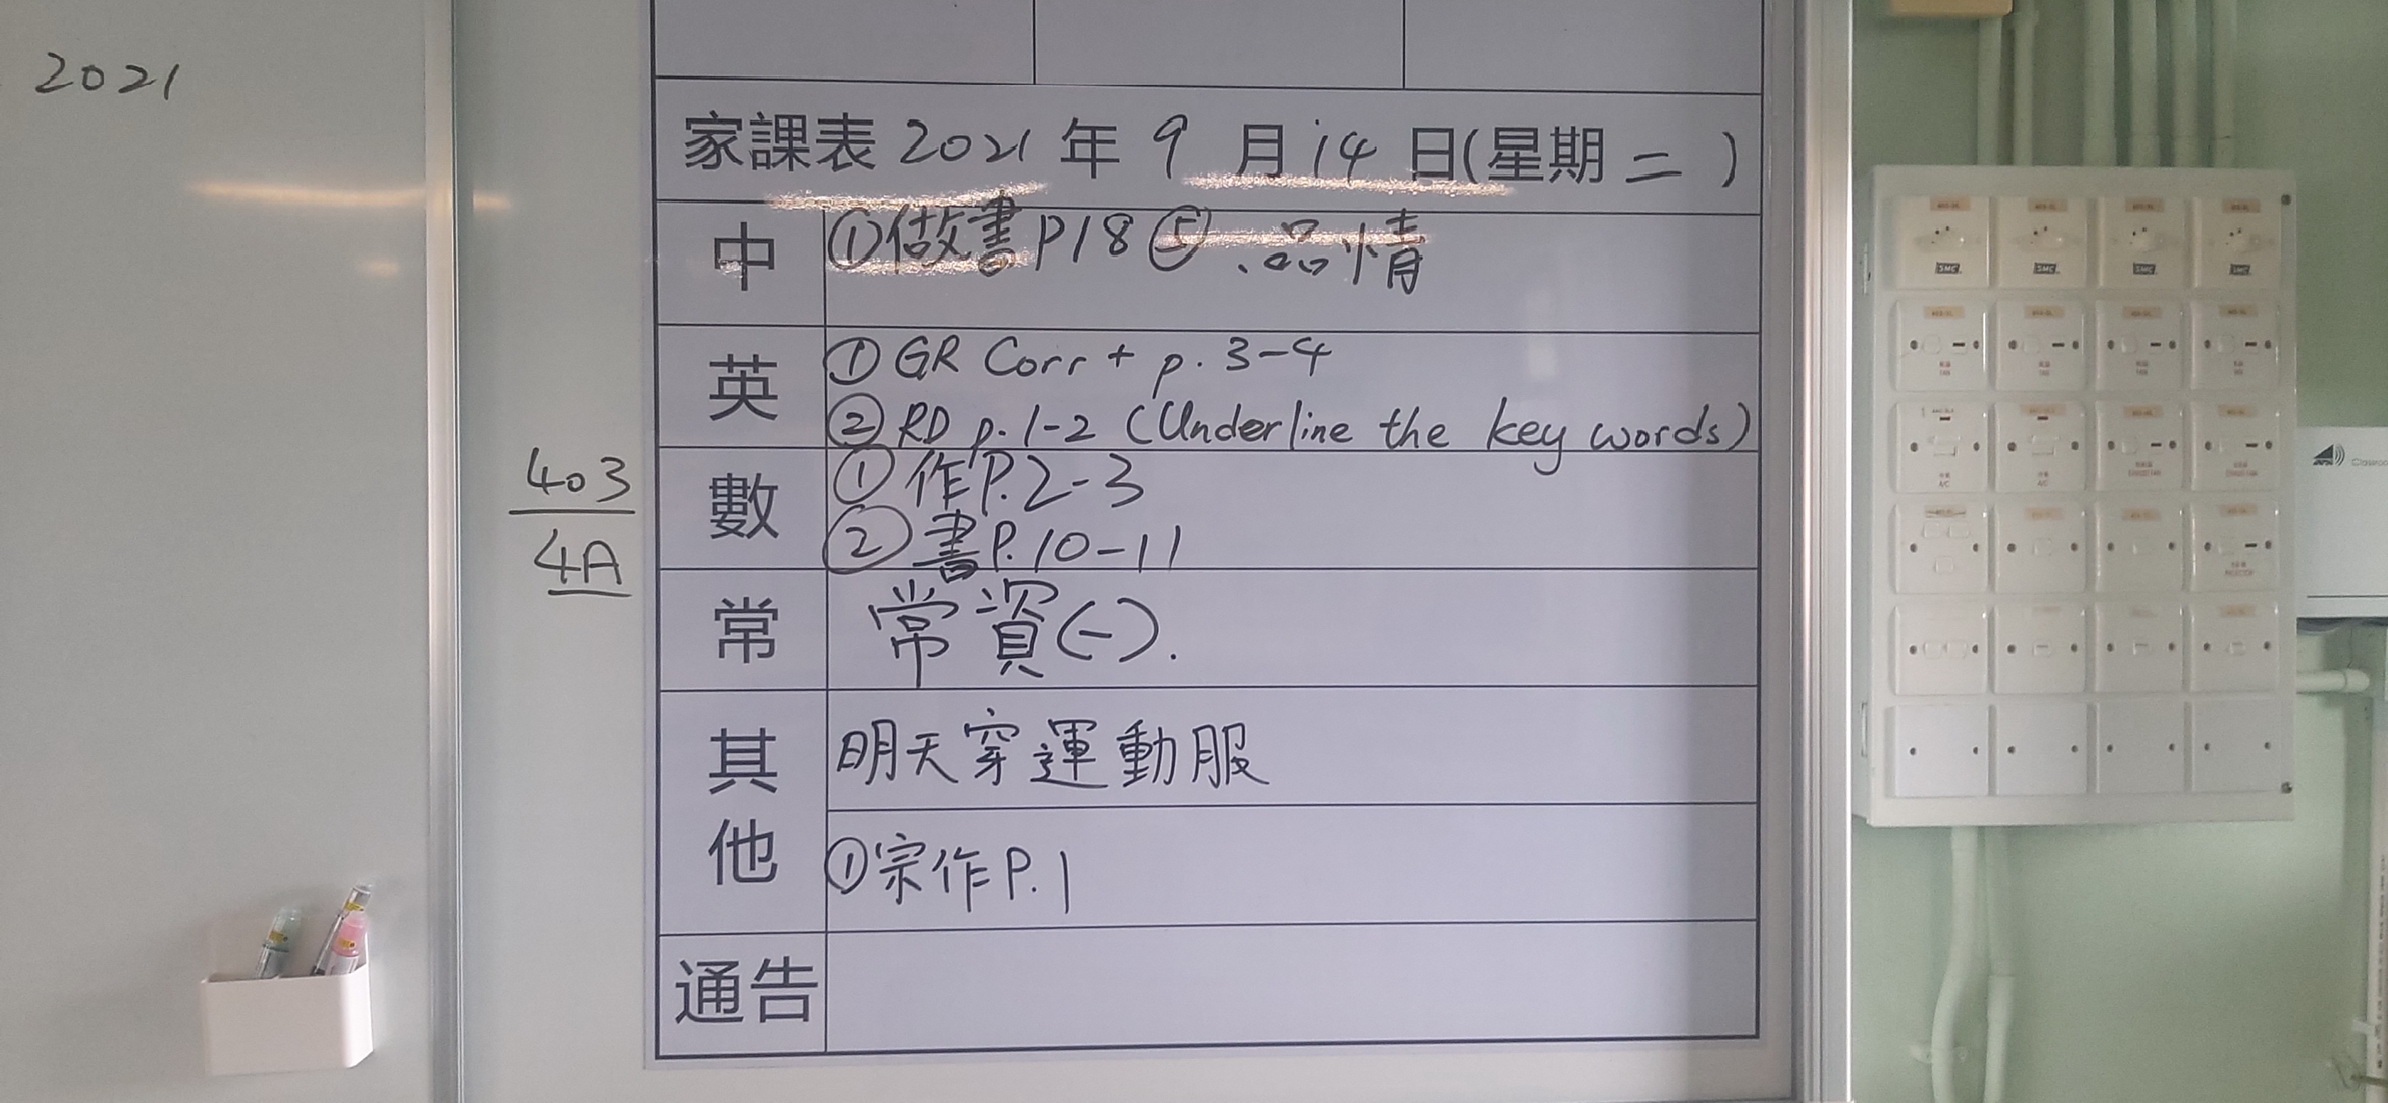 2021
家課表 2021 年 9 月 14 日(星期 二 )
中 ①做書P18⑤、品情
英 ① GR Corr + p. 3-4
② RD p. 1-2 (Underline the key words)
403
4A
數 ① 作P.2-3
② 書P.10-11
常 常資(一).
其他 明天穿運動服
①宗作P.1
通告